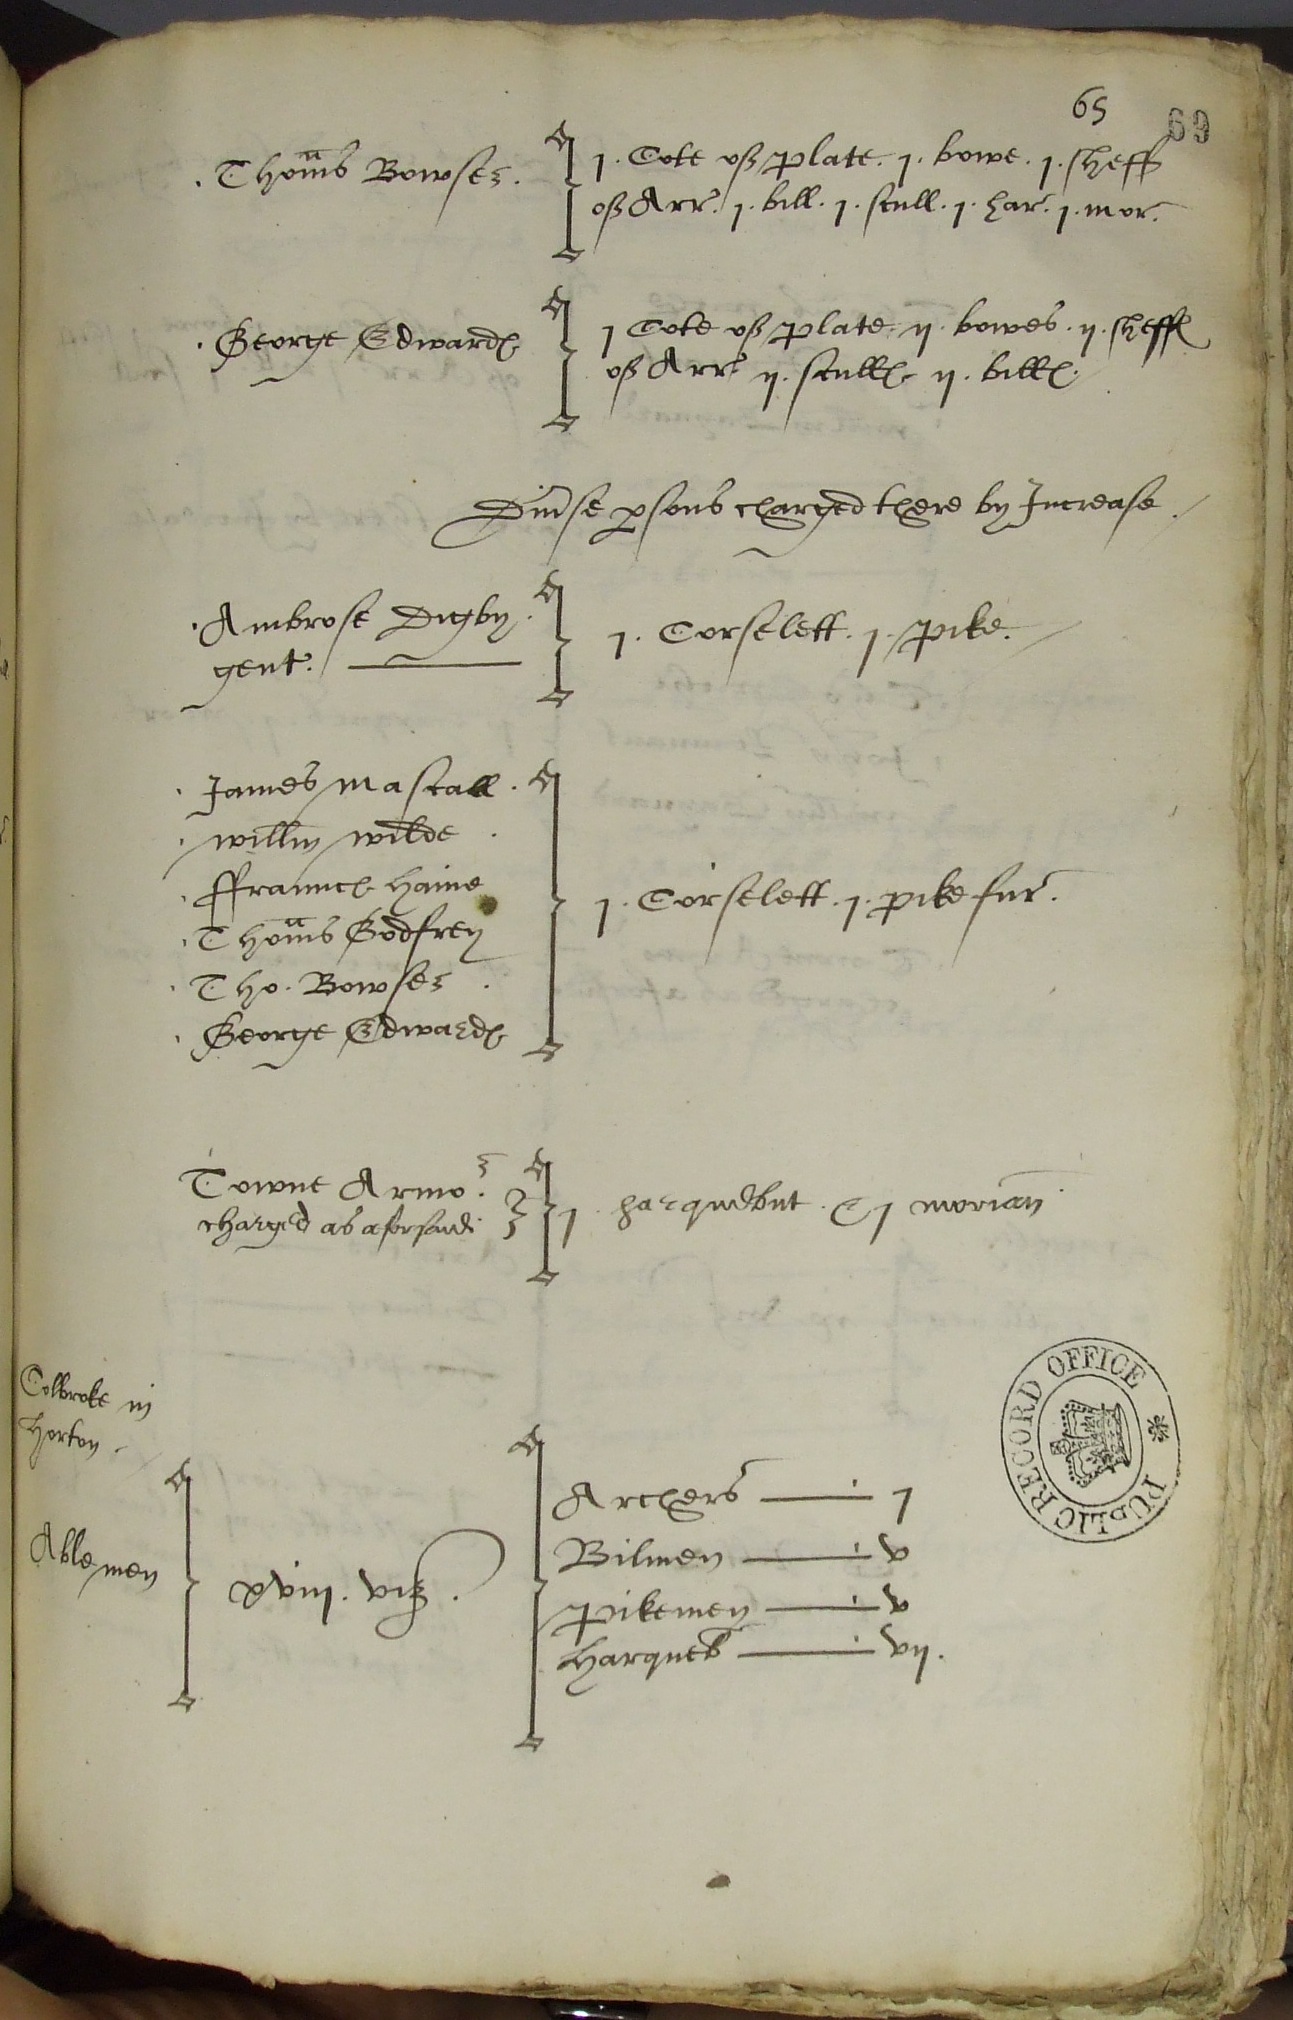 65
69
. Thom̃s Bowser .
j . Cote of plate . j . bowe . j . sheff
of Arr. j . bill . j . scull . j . har . j . mor .
. George Edward
j Cote of plate . ij . bowes . ij . sheff
of Arr ij . scull ij . bill
Diũse psons charged there by Increase .
. Ambrose Digby .
gent .
j . Corselett . j . pike .
. James Mascall .
. willm wilde .
. ffraunc haine
. Thom̃s Godfrey
. Tho . Bowser .
. George Edward
j . Corselett . j . pike fur .
Towne Armor .
charged as aforsaid
j harquebut . & j morian
Colbroke in
Horton .
Able men
xviij . viz .
Archers j
Bilmen v
pikemen v
Harqueb vij .
PUBLIC RECORD OFFICE